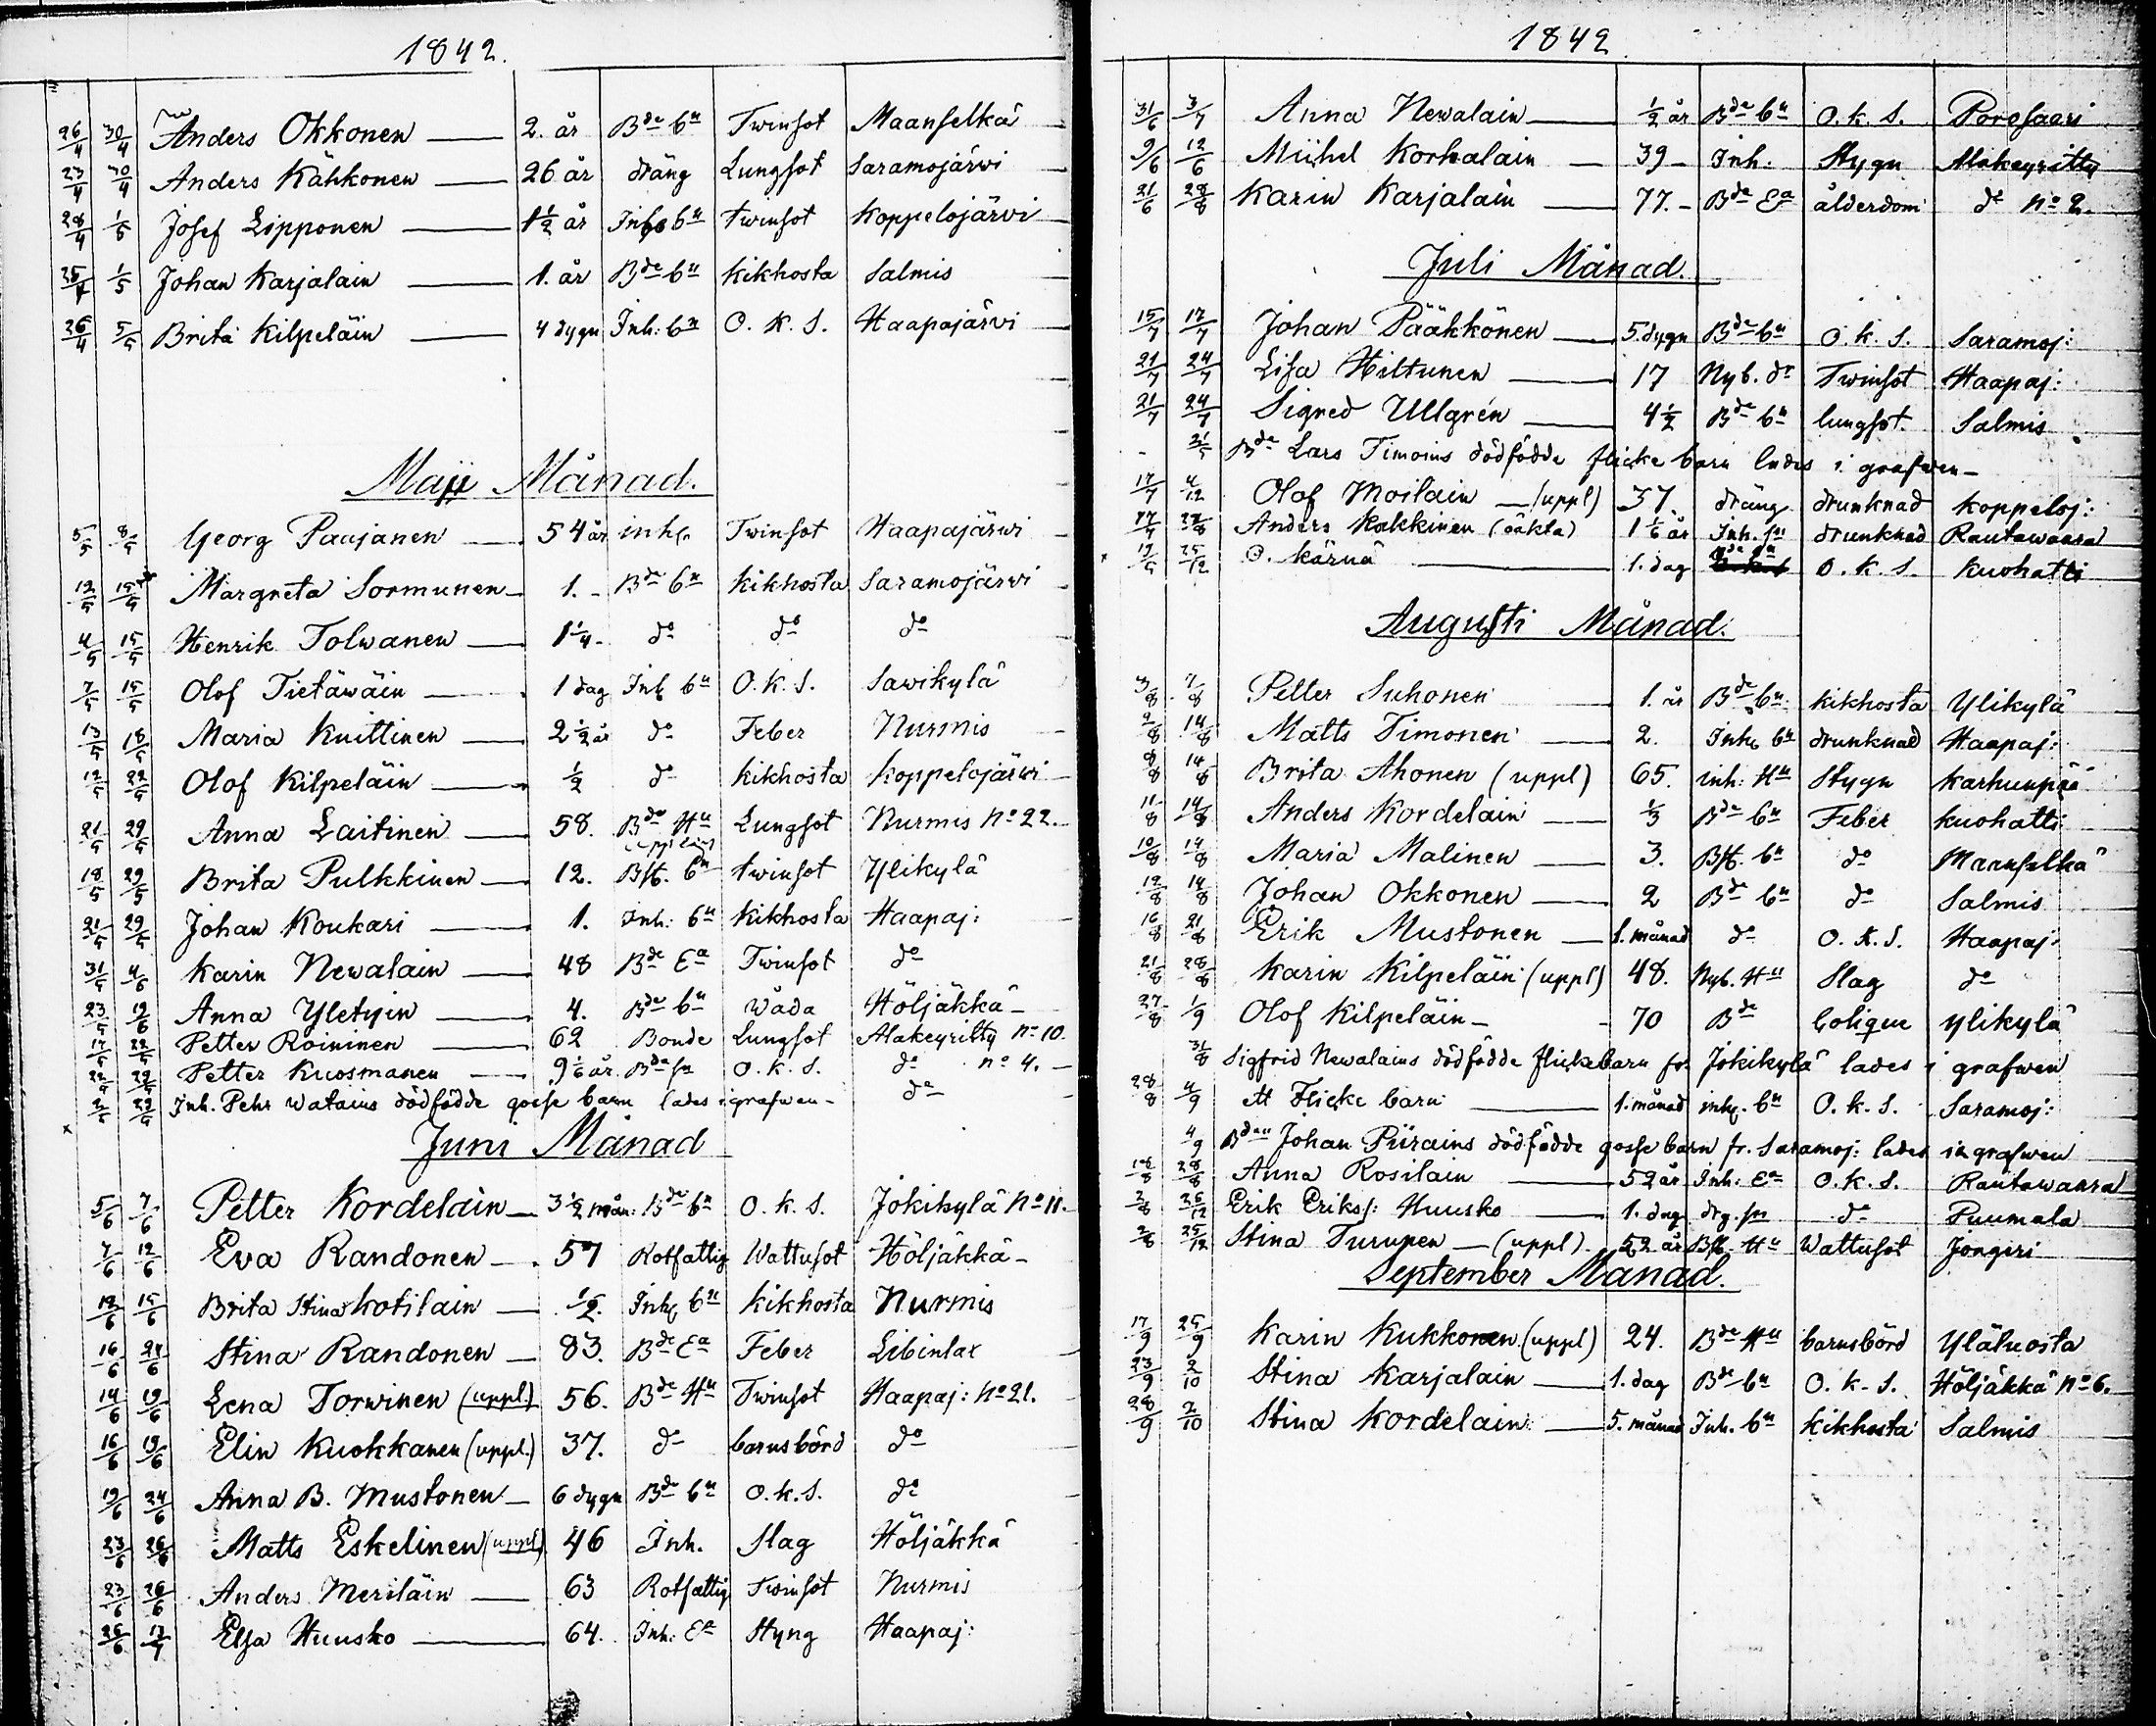 1842.
26/4 30/4 Anders Okkonen — 2. år Bde bn Twinsot Maanselkä
23/4 30/4 Anders Kähkonen — 26 år dräng Lungsot Saramojärwi
28/4 1/5 Josef Lipponen — 1½ år Inhs bn twinsot Koppelojärvi
25/4 1/5 Johan Karjalain — 1. år Bde bn kikhosta Salmis
26/4 5/5 Brita Kilpeläin — 4 dygn Inh: bn O. K. S. Haapajärvi
Maji Månad.
5/5 8/5 Georg Paajanen — 54 år inhs Twinsot Haapajärwi
12/5 15/5 Margreta Sormunen — 1. - Bde bn kikhosta Saramojärwi
4/5 15/5 Henrik Tolwanen — 1¼ - do do do
7/5 15/5 Olof Tietäwäin — 1 dag Inh bn O. K. S. Sawikylä
13/5 18/5 Maria Kuittinen — 2½ år do Feber Nurmis
12/5 22/5 Olof Kilpeläin — ½ do kikhosta Koppelojärwi
21/5 29/5 Anna Laitinen — 58. Bde Hu Lungsot Nurmis No 22.
18/5 29/5 Brita Pulkkinen — 12. Bst. bn twinsot Ylikylä
21/5 29/5 Johan Koukari — 1. Inh: bn kikhosta Haapaj:
31/5 4/6 Karin Newalain — 48 Bde Ea Twinsot do
23/5 12/6 Anna Yletyin — 4. Bde bn wåda Höljäkkä -
17/5 22/5 Petter Roininen — 62 Bonde Lungsot Alakeyritty No 10.
22/5 29/5 Petter Kuosmanen — 9 1/6 år. Bde sn O. K. S. do No 4. -
2/5 29/5 Inh. Pehr Watains dödfödde gosse barn lades i grafwen - do
Juni Månad
5/6 7/6 Petter Kordelain — 3½ mån: Bde bn O. K. S. Jokikylä No 11.
7/6 12/6 Eva Randonen — 57 Rotfattig Wattusot Höljäkkä -
12/6 15/6 Brita Stina Kotilain — ½. Inhs bn kikhosta Nurmis
16/6 24/6 Stina Randonen — 83. Bde Ea Feber Libinlax
14/6 19/6 Lena Torwinen (uppl.) 56. Bde Hu Twinsot Haapaj: No 21.
16/6 19/6 Elin Kuokkanen (uppl.) 37. do barnsbörd do
19/6 24/6 Anna B. Mustonen — 6 dygn Bde bn O. K. S. do
23/6 26/6 Matts Eskelinen (uppl) 46 Inh. Slag Höljäkkä
23/6 26/6 Anders Meriläin — 63 Rotfattig Twinsot Nurmis
26/6 17/7 Elsa Huusko — 64. Inh: Ea Styng Haapaj:
1842
31/6 3/7 Anna Newalain — ½ år Bde bn O. K. S. Porosaari
9/6 12/6 Michel Korhalain — 39 - Inh. Stygn Alakeyritty
21/6 28/8 Karin Karjalain — 77. - Bde Ea ålderdom do No 2.
Juli Månad.
15/7 17/7 Johan Pääkkönen — 5. dygn Bde bn O. K. S. Saramoj:
21/7 24/7 Lisa Hiltunen — 17 Nyb. dr Twinsot Haapaj:
21/7 24/7 Signed Ullgrén — 4½ Bde bn lungsot Salmis
- Bde Lars Timoins dödfödde flicke barn lades i grafwen -
17/7 4/12 Olof Moilain — (uppl) 37. dräng drunknad Koppeloj:
Anders Kekkinen (oäkta) 1 1/6 år Inh. sn drunknad Rautawaara
O. Kärnä — 1. dag O. K. S. Kuohatti
Augusti Månad.
3/8 7/8 Petter Suhonen — 1. år Bde bn kikhosta Ylikylä
2/8 14/8 Matts Timonen — 2. Inhs bn drunknad Haapaj:
8/8 14/8 Brita Ahonen (uppl) 65. inh: Hu Stygn Karhunpää
11/8 14/8 Anders Kordelain — ⅓ Bde bn Feber Kuohatti
10/8 14/8 Maria Malinen — 3. Bst. bn do Maanselkä
12/8 14/8 Johan Okkonen — 2 Bde bn do Salmis
16/8 21/8 Erik Mustonen — 1. månad do O. K. S. Haapaj:
21/8 28/8 Karin Kilpeläin (uppl) 48. Nyb. Hu Slag do
27/8 1/9 Olof Kilpeläin — 70 Bde Colique Ylikylä
31/8 Sigfrid Newalains dödfödde flickebarn fr. Jokikylä lades i grafwen
28/8 4/9 ett Flicke barn — 1. månad inhs. bn O. K. S. Saramoj:
4/9 Bden Johan Piirains dödfödde gosse barn fr. Saramoj: lades i grafwen
18/8 28/8 Anna Rosilain — 52 år Inh: Ea O. K. S. Rautawaara
Erik Erikss: Huusko — 1. dag drg. sn do Puumala
2/8 25/12 Stina Turunen — (uppl) 52 år Bst. Hu Wattusot Jongeri
September Månad.
17/9 25/9 Karin Kukkonen (uppl) 24. Bde Hu barnsbörd Yläluosta
23/9 2/10 Stina Karjalain — 1. dag Bde bn O. K. S. Höljäkkä No 6.
28/9 2/10 Stina Kordelain — 5. månad Inh. bn kikhosta Salmis